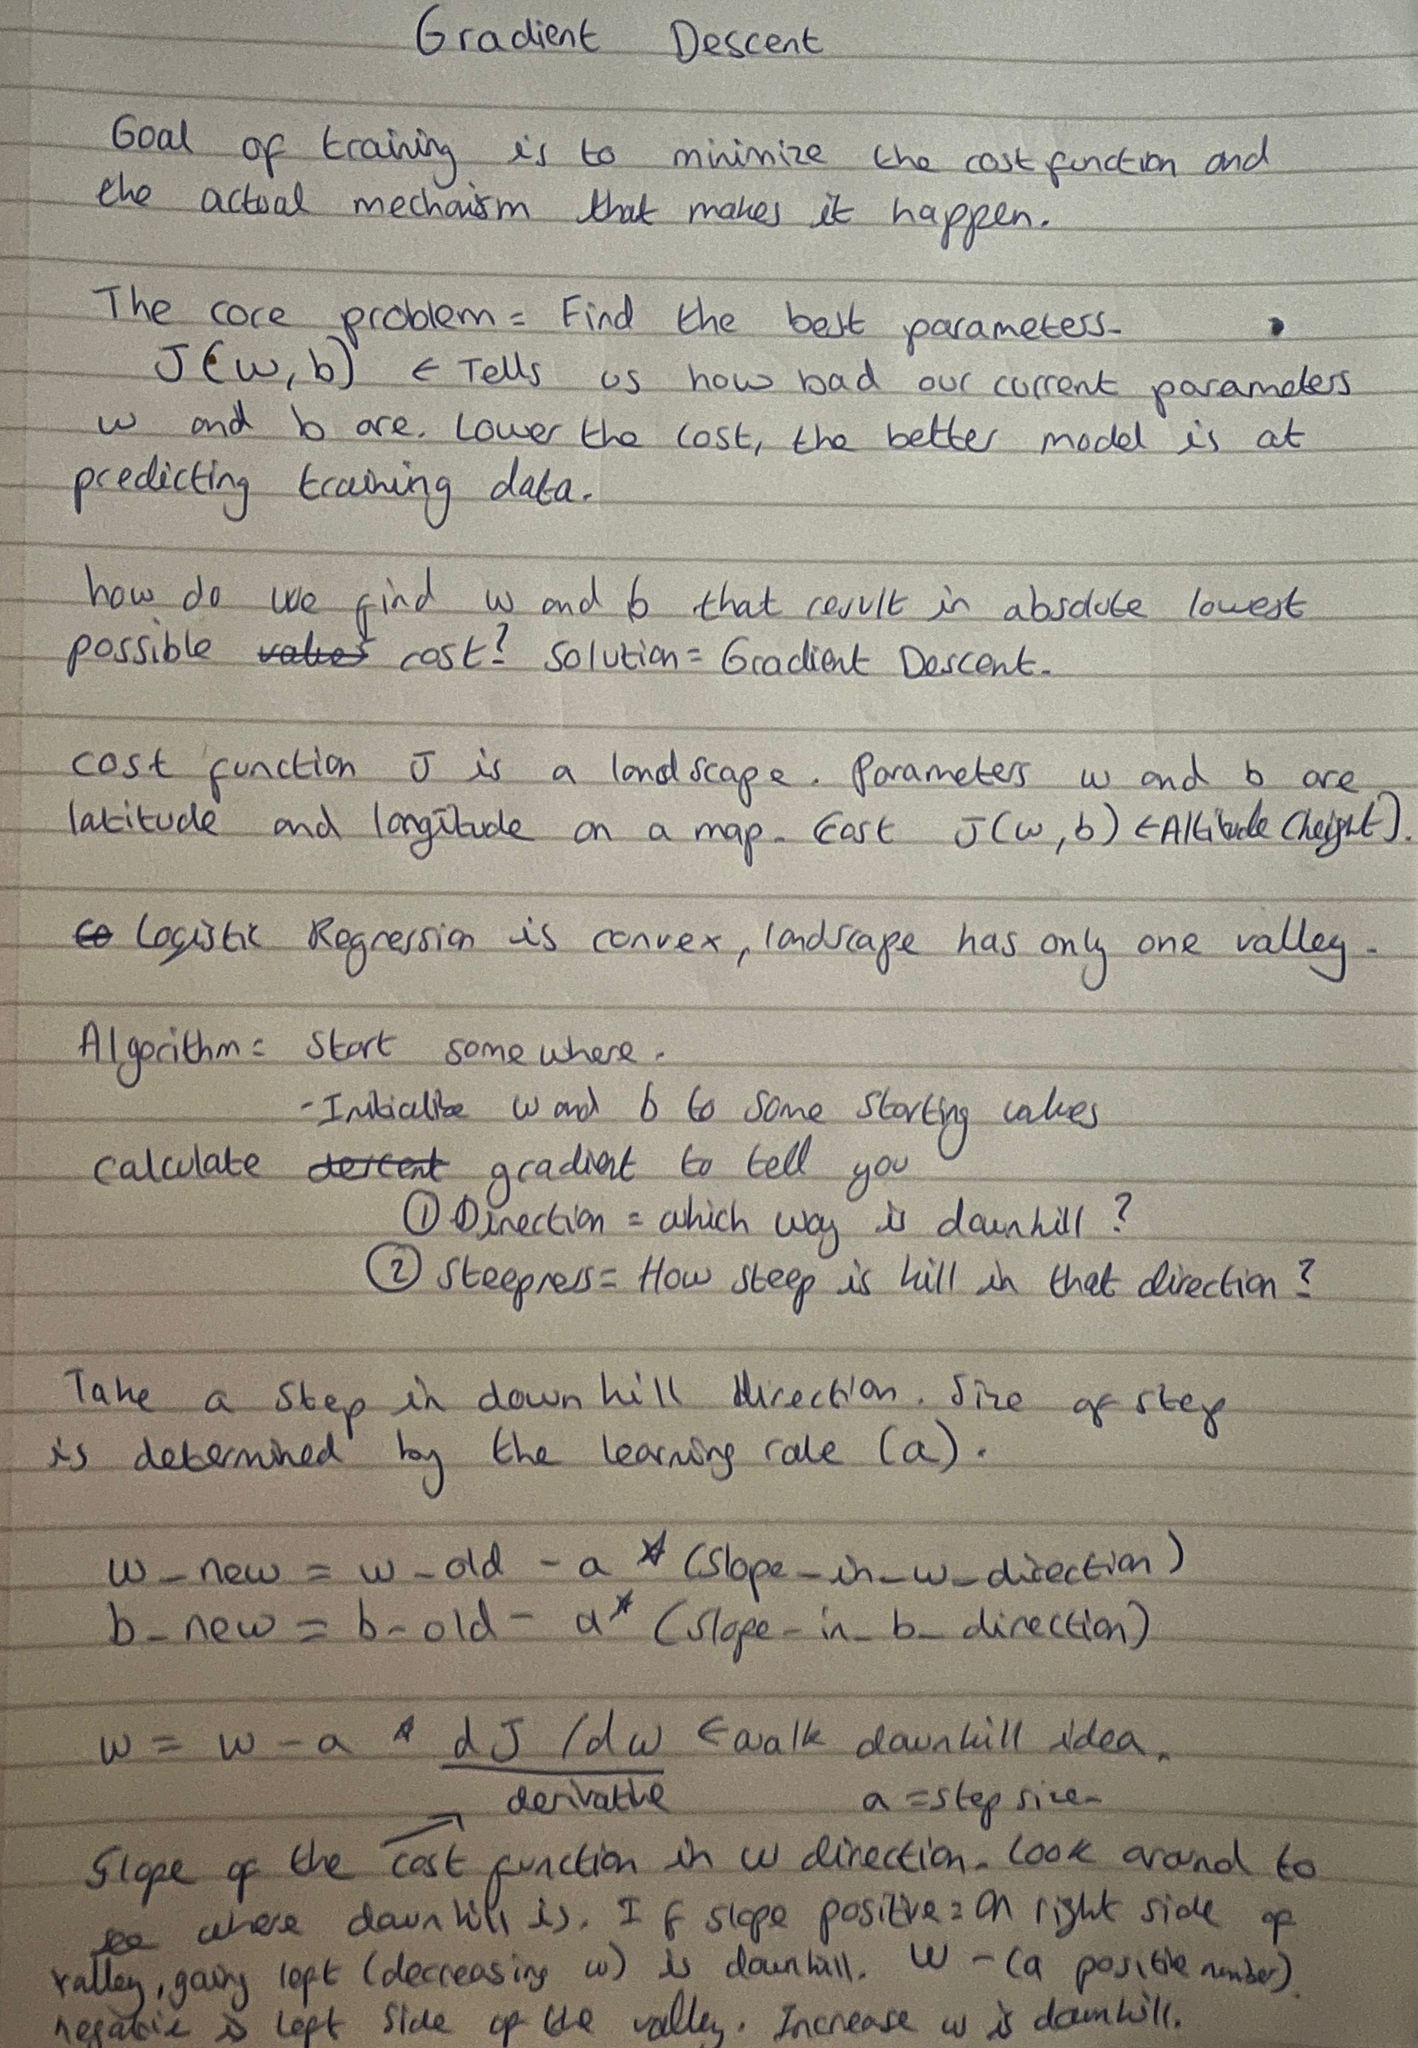 Gradient Descent
Goal of training is to minimize the cost function and
the actual mechanism that makes it happen.
The core problem = Find the best parameters.
J(w,b) ← Tells us how bad our current parameters
w and b are. Lower the cost, the better model is at
predicting training data.
how do we find w and b that result in absolute lowest
possible values cost? Solution = Gradient Descent.
cost function J is a landscape. Parameters w and b are
latitude and longitude on a map. Cost J(w,b) ← Altitude (height).
Logistic Regression is convex, landscape has only one valley.
Algorithm = Start somewhere.
- Initialize w and b to some starting values
calculate descent gradient to tell you
① Direction = which way is downhill?
② Steepness = How steep is hill in that direction?
Take a step in downhill direction. Size of step
is determined by the learning rate (a).
w_new = w_old - a * (slope_in_w_direction)
b_new = b_old - a * (slope_in_b_direction)
w = w - a * dJ/dw ← walk downhill idea.
derivative a = step size.
Slope of the cost function in w direction. Look around to
see where downhill is. If slope positive = On right side of
valley, going left (decreasing w) is downhill. w - (a positive number).
negative is left side of the valley. Increase w is downhill.